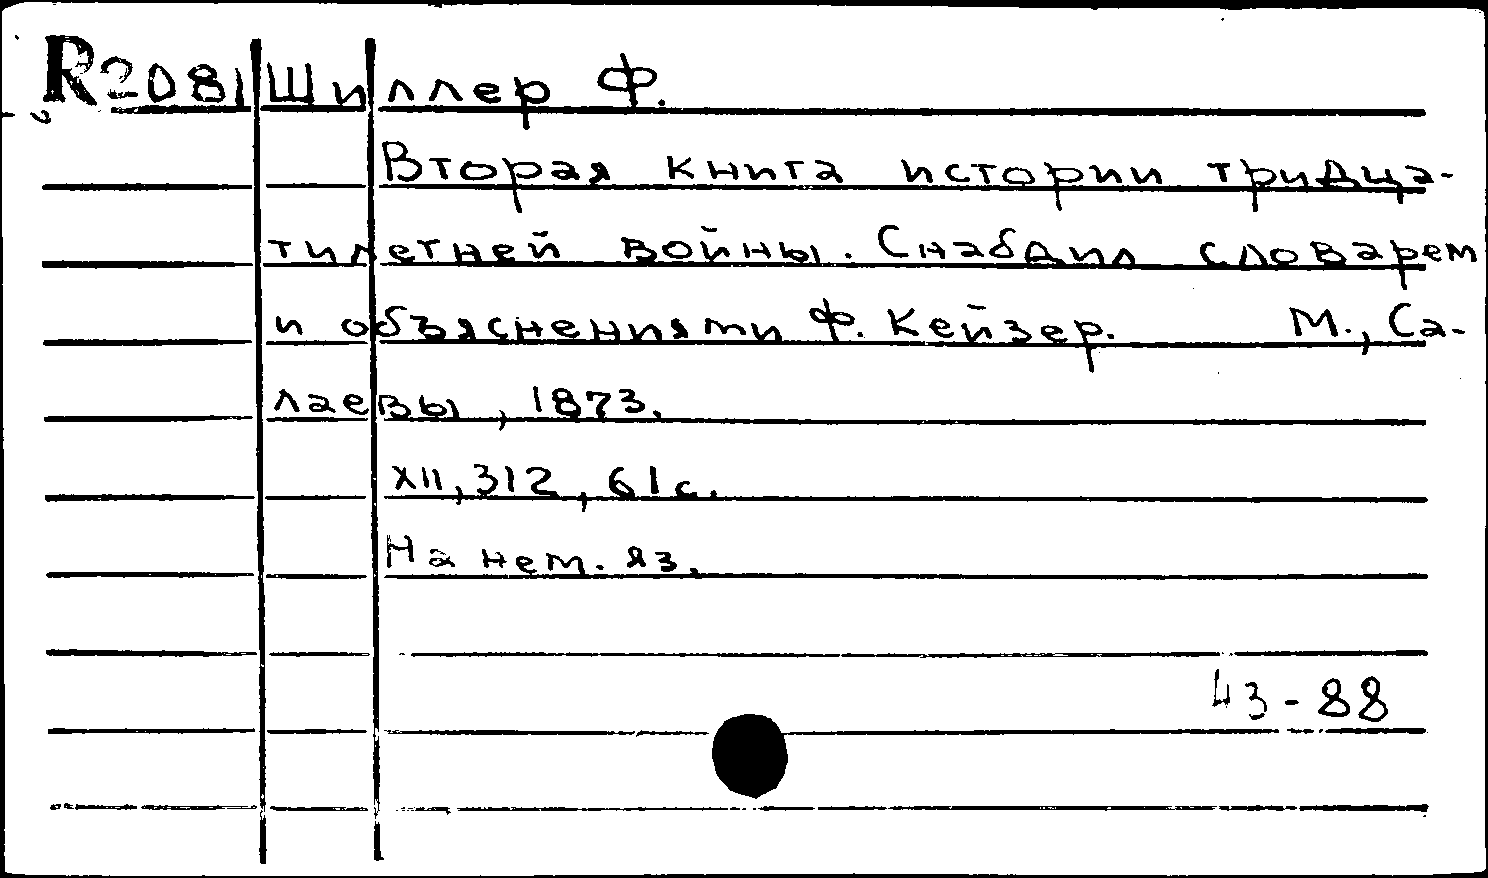 R2081 Шиллер Ф.
Вторая книга истории тридца-
тилетней войны. Снабдил словарем
и объяснениями Ф. Кейзер. М., Са-
лаевы, 1873.
XII, 312, 61 с.
На нем. яз.
43-88